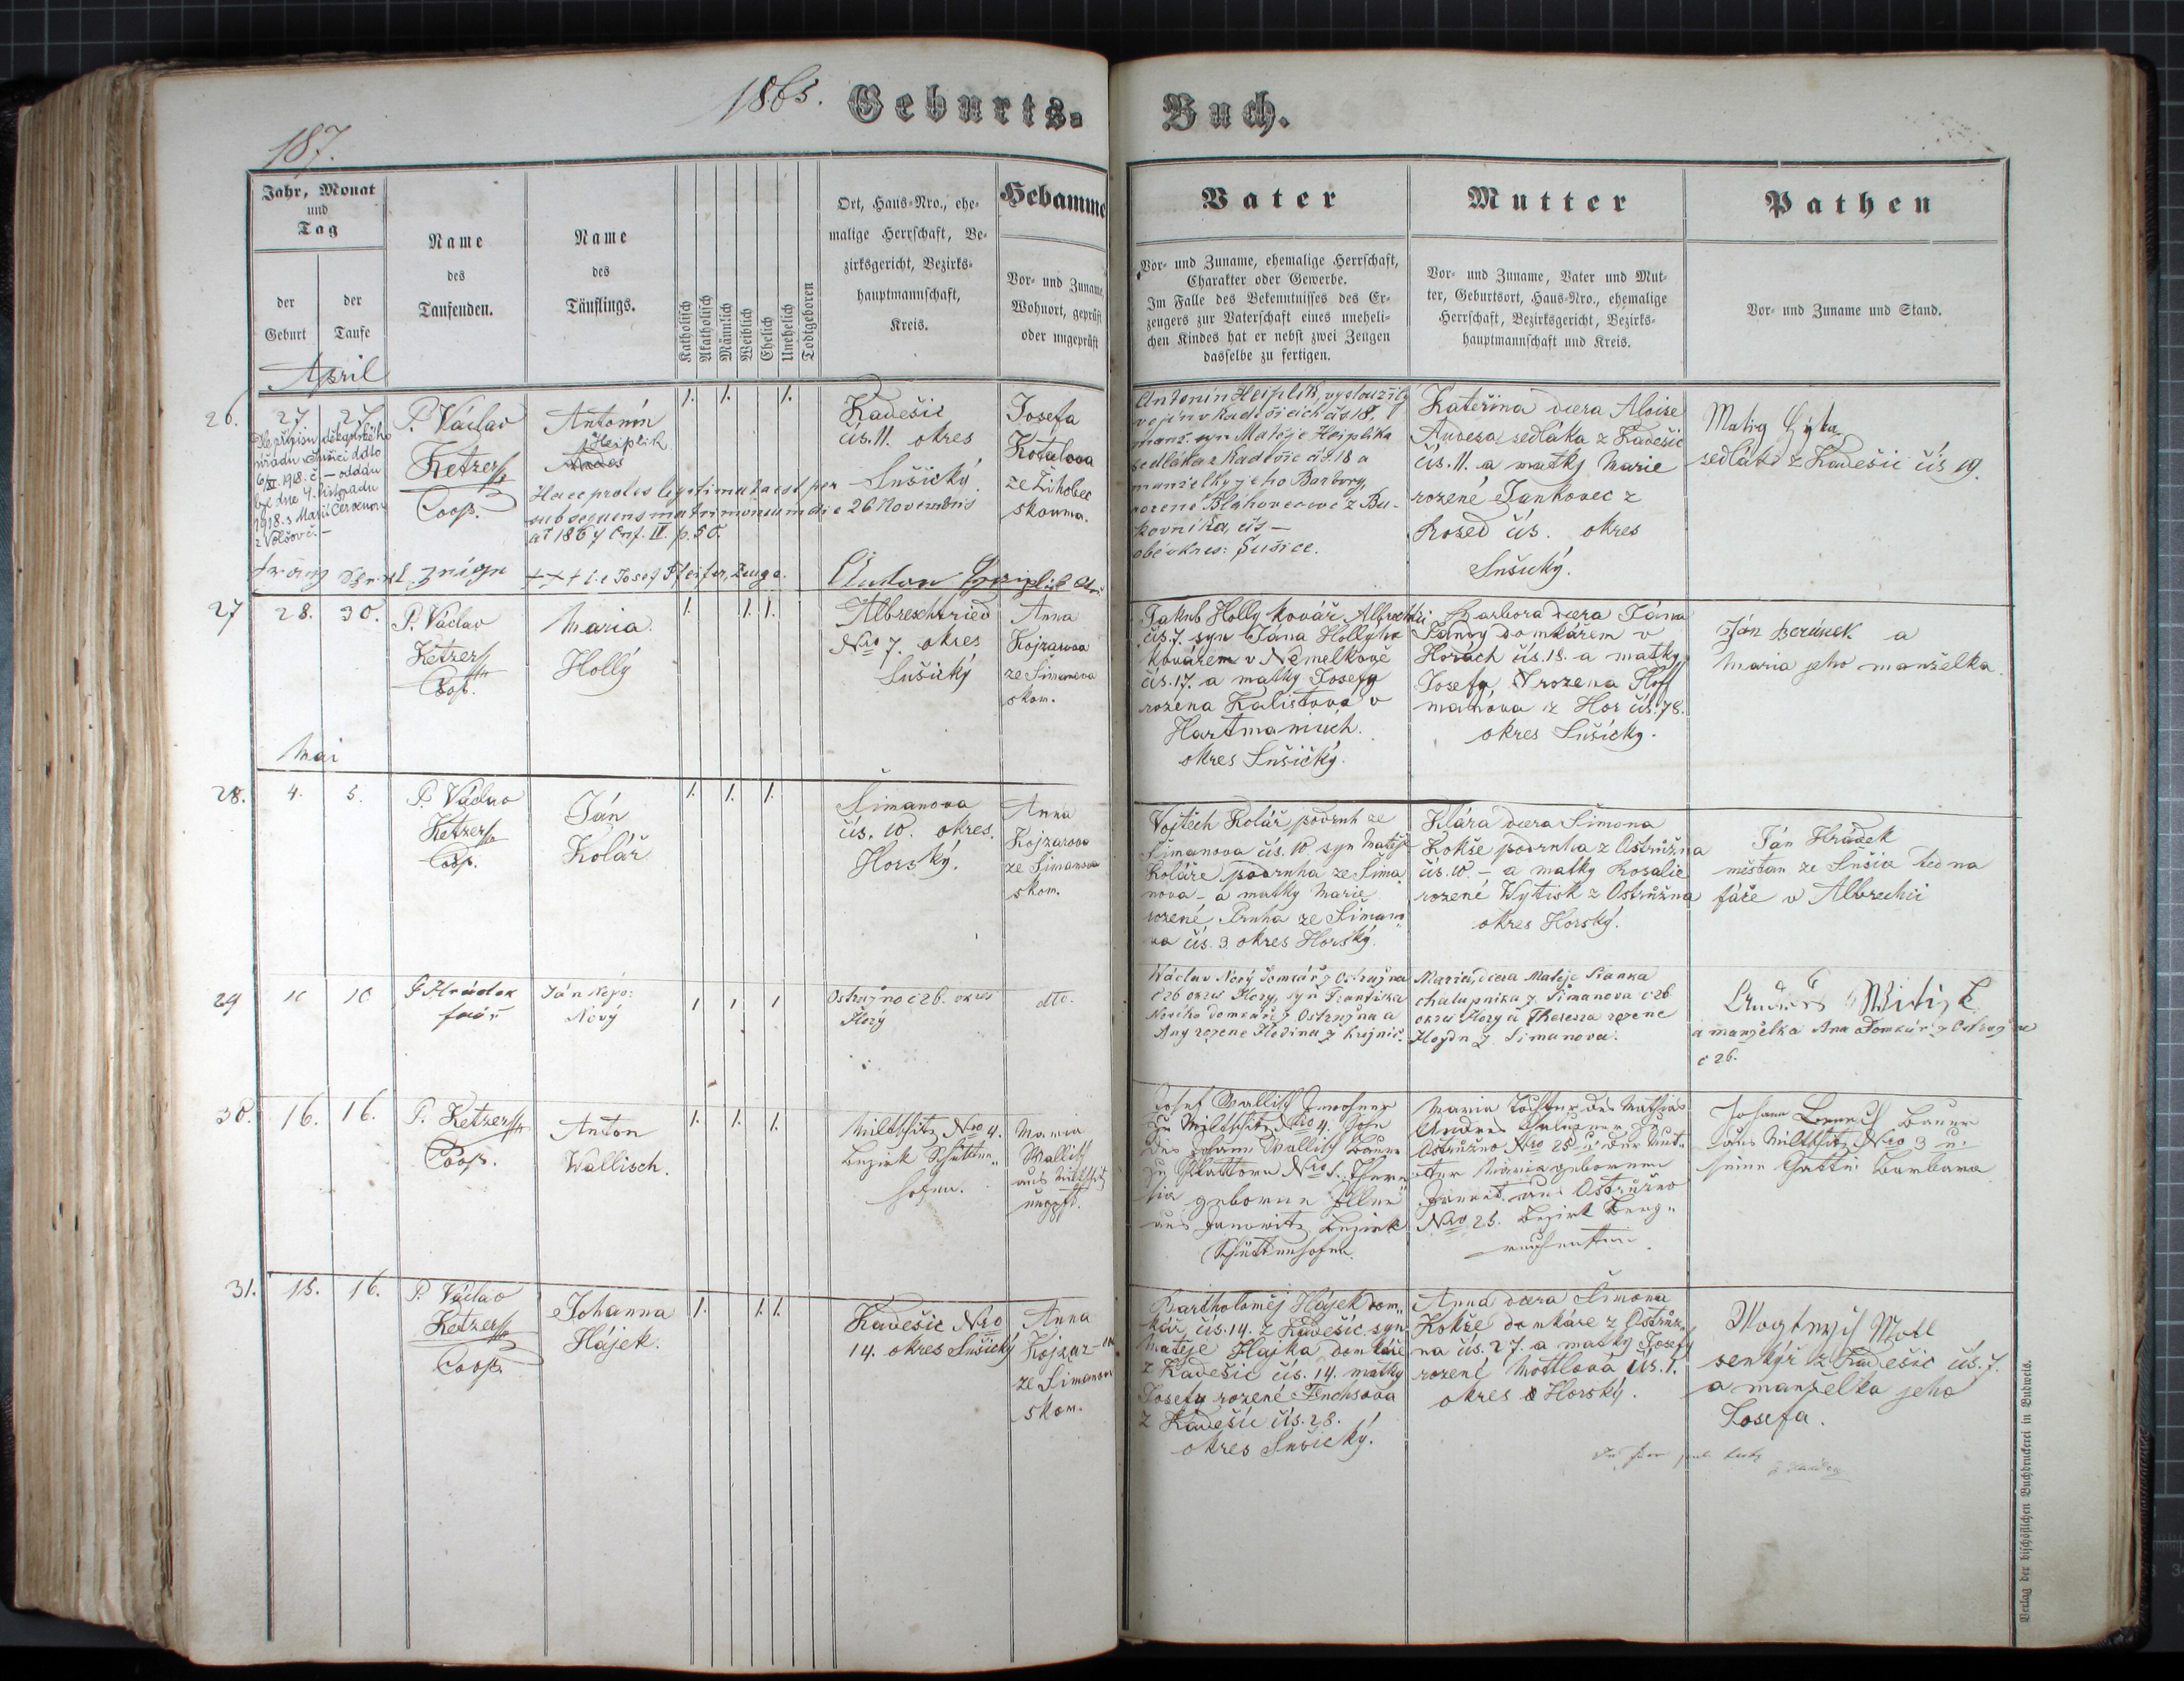 1865.
Geburts=
Buch.
187.
Jahr, Monat
und
Tag
der
Geburt
der
Taufe
Name
des
Taufenden.
Name
des
Täuflings.
Katholisch
Akatholisch
Männlich
Weiblich
Ehelich
Unehelich
Todtgeboren
Ort, Haus=Nro., ehe=
malige Herrschaft, Be=
zirksgericht, Bezirks=
hauptmannschaft,
Kreis.
Hebamme
Vor= und Zuname,
Wohnort, geprüft
oder ungeprüft
Vater
Vor= und Zuname, ehemalige Herrschaft,
Charakter oder Gewerbe.
Im Falle des Bekenntnisses des Er=
zeugers zur Vaterschaft eines uneheli=
chen Kindes hat er nebst zwei Zeugen
dasselbe zu fertigen.
Mutter
Vor= und Zuname, Vater und Mut=
ter, Geburtsort, Haus=Nro., ehemalige
Herrschaft, Bezirksgericht, Bezirks=
hauptmannschaft und Kreis.
Pathen
Vor= und Zuname und Stand.
April
26.
27.
27.
Dle přípisu děkanského
úřadu v Sušici ddto
6/XI. 1918. č. — oddán
byl dne 4. listopadu
1918. s Marií Červenou
z Volšov č. —
P. Václav
Ketzer
Coop.
Antonín
Heiplik
1. 1. 1.
Haec proles legitimata est per
subsequens matrimonium die 26 Novembris
a 1867 Cnf. II. p. 50.
Kadešic
čís. 11. okres
Sušický
Josefa
Kotalova
ze Žihobec
skouma.
Antonín Heiplík, vysloužilý
vojín v Kadešicích čís. 18.
manž. syn Matěje Heiplíka
sedláka z Kadešic čís. 18 a
manželky jeho Barbory,
rozené Bláhovcové z Bu-
kovníka, čís —
obé okres: Sušice.
Kateřina dcera Aloise
Andesa sedláka z Kadešic
čís. 11. a matky Marie
rozené Jankovec z
Rosed čís. okres
Sušický.
sedlák z Kadešic čís 19.
+++ i.e Josef Pfeifer, Zeuge.
27
28.
30.
P. Václav
Ketzer
Coop.
Maria
Hollý
1. 1. 1.
Albrechtried
Nro 7. okres
Sušický
Anna
Kojzarova
ze Šimanova
skom.
Jakub Holly kovář Albrechtic
čís. 7. syn Jána Hollyho
kovářem v Nemelkově
čís. 17. a matky Josefy
rozena Kalistova v
Hartmanicích.
okres Sušický.
Barbora dcera Jána
Pandy domkářem v
Horach čís. 18. a matky
Josefy, rozena Hoff
manova z Hor čís. 78.
okres Sušicky.
Ján Beránek a
Maria jeho manželka.
Mai
28.
4.
5.
P. Václav
Ketzer
Coop.
Ján
Kolář
1. 1. 1.
Šimanova
čís. 10. okres.
Horský.
Anna
Kojzarova
ze Šimanova
skom.
Vojtěch Kolář, podruh ze
Šimanova čís. 10 syn Matěje
Koláře podruha ze Šima
nova – a matky Marie
rozené Pruha ze Šimano
va čís. 9. okres Horský.
Klára dcera Šimona
Kokše podruha z Ostružna
čís. 10. – a matky Rosalie
rozené Wytisk z Ostružna
okres Horský.
Ján Hrádek
měšťan ze Sušice
faře v Albrechci
29
10
10
P Hrádek
farář
Ján Nepo:
Nový
1 1 1
Ostružno č 26. okres
Hory
dto.
Wáclav Nový domkář z Ostružna
č 26 okres Hory, syn Františka
Nového domkáře z Ostružna a
Any rozene Hodina z
Maria, dcera Matěje Stanka
chalupnika z Šimanova č 26
okres Hory a Theresa rozene
Haydn z Šimanova.
Andreas Witisk
a manželka Ana Domkář z Ostružna
č 26.
30.
16.
16.
P. Ketzer
Coop.
Anton
Wallisch.
1. 1. 1.
Miltschitz Nro 4.
Bezirk Schütten„
hofen.
Maria
Wallisch
aus Miltschitz
ungepft.
Josef Wallisch Inwohner
zu Miltschitz Nro 4. Sohn
des Johann Wallisch Bauer
zu Nro 1. There„
sia geborne
aus Janowitz Bezirk
Schüttenhofen.
Maria Tochter des Mathias
Andres
Ostružno Nro 25 u. der Mut„
ter Maria gebornen
aus Ostružno
Nro 25. Bezirk Berg„
reichenstein.
Johann Bauer
aus Miltschitz Nro 3 u.
seine Gattin Barbara
31.
15.
16.
P. Václav
Ketzer
Coop.
Johanna
Hájek.
1. 1. 1.
Kadešic Nro
14. okres Sušický
Anna
Kojzar-
ze Šimanova
skom.
Bartholoměj Hájek dom„
kář, čís. 14. z Kadešic syn
Matěje Hajka domkáře
z Kadešic čís. 14. matky
Josefy rozené Fuchsova
z Kadešic čís. 28.
okres Sušický.
Anna dcera Šimona
Kokše domkáře z Ostruž
na čís. 27. a matky Josefy
rozené Mottlová čís. 1.
okres Horský.
Motl
senkýř z Kadešic čís. 7.
a manželka jeho
Josefa.
Verlag der bischöflichen Buchdruckerei in Budweis.